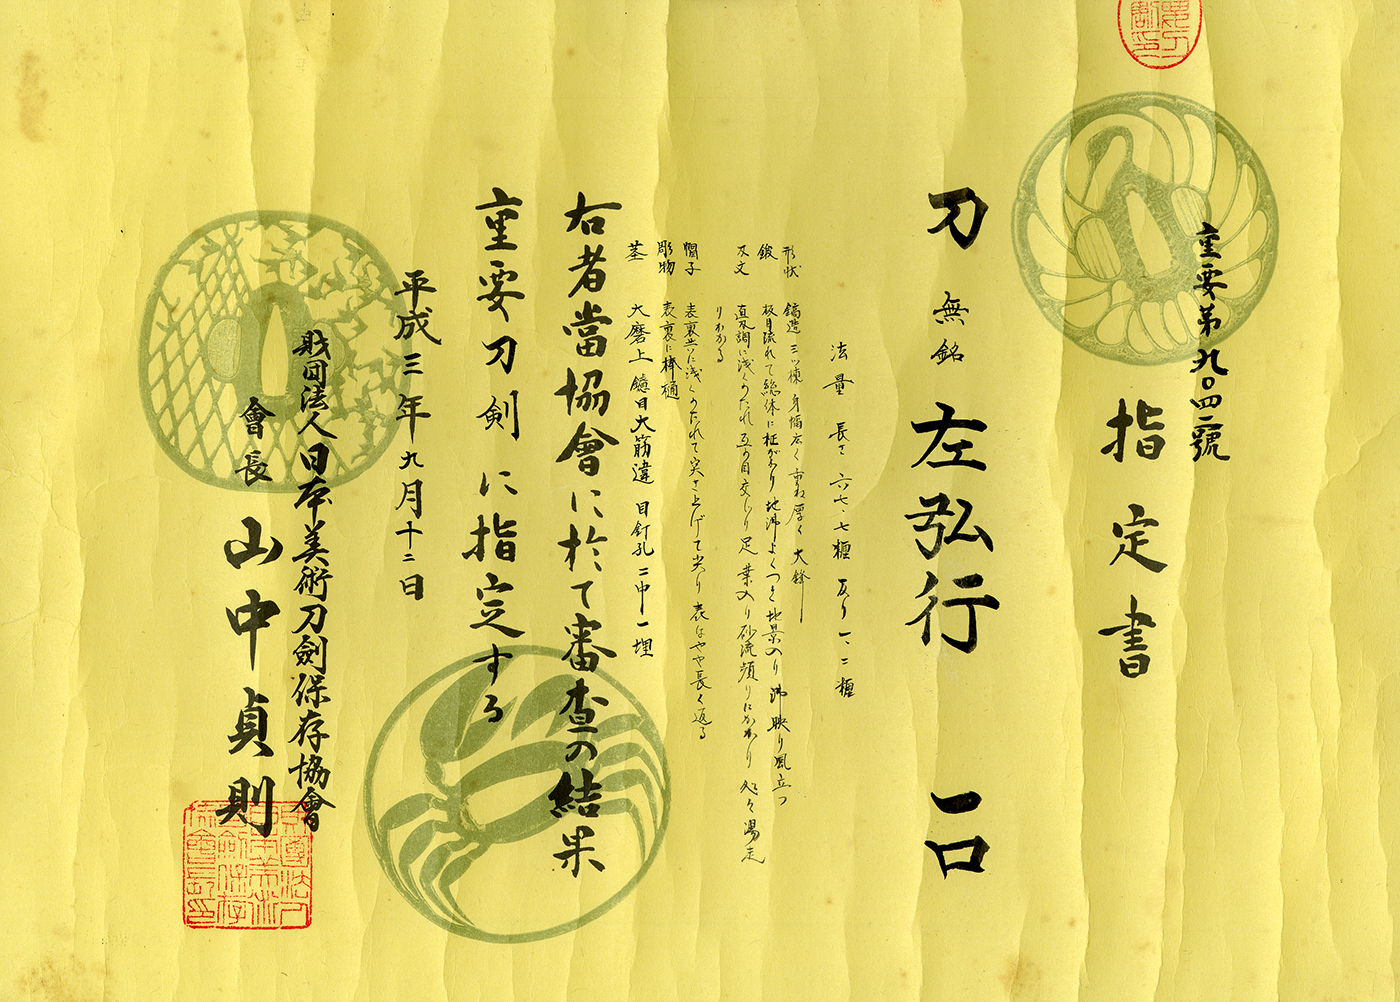 重要第九〇四二號
指定書
刀 無銘 左弘行 一口
法量 長さ 六七・七糎 反り 一、二糎
形状 鎬造 三ツ棟 身幅広く 重ね厚く 大鋒
鍛 板目流れて総体に柾がかり 地沸よくつき 地景入り 沸映り風立つ
刃文 直刃調に浅くのたれ 互の目交じり 足 葉入り 砂流頻りにかかり 処々湯走りかかる
帽子 表裏共に浅くのたれて突き上げて尖り 表はやや長く返る
彫物 表裏に棒樋
茎 大磨上 鑢目大筋違 目釘孔二中一埋
右者當協會に於て審査の結果
重要刀剣に指定する
平成三年九月十二日
財団法人日本美術刀劍保存協會
會長 山中貞則